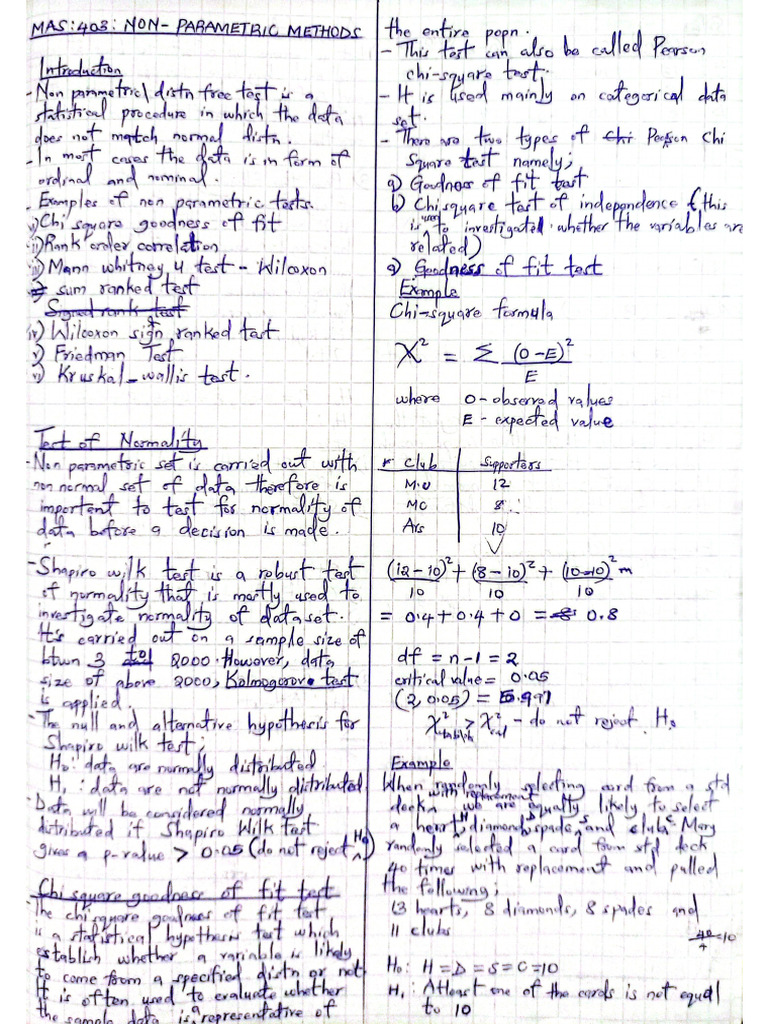 MAS:403: NON-PARAMETRIC METHODS
Introduction
- Non parametric/distn free test is a
statistical procedure in which the data
does not match normal distn.
- In most cases the data is in form of
ordinal and nominal.
- Examples of non parametric tests.
i) Chi square goodness of fit
ii) Rank order correlation
iii) Mann whitney U test - Wilcoxon
sum ranked test
Signed rank test
iv) Wilcoxon sign ranked test
v) Friedman Test
vi) Kruskal-wallis test.
Test of Normality
- Non parametric set is carried out with
non normal set of data therefore is
important to test for normality of
data before a decision is made.
- Shapiro wilk test is a robust test
of normality that is mostly used to
investigate normality of dataset.
It's carried out on a sample size of
btwn 3 to 2000. However, data
size of above 2000, Kolmogorov test
is applied.
- The null and alternative hypothesis for
Shapiro wilk test;
H₀: data are normally distributed
H₁: data are not normally distributed
- Data will be considered normally
distributed if Shapiro Wilk test
gives a p-value > 0.05 (do not reject H₀)
Chi square goodness of fit test
- The chi square goodness of fit test
is a statistical hypothesis test which
establish whether a variable is likely
to come from a specified distn or not
It is often used to evaluate whether
the sample data is a representative of
the entire popn.
- This test can also be called Pearson
chi-square test.
- It is used mainly on categorical data
set.
- There are two types of Chi Pearson Chi
Square test namely;
a) Goodness of fit test
b) Chi square test of independence (this
is used to investigated whether the variables are
related)
a) Goodness of fit test
Example
Chi-square formula
X² = Σ (O-E)²
E
where O - observed values
E - expected value
Club Supporters
M.U 12
MC 8
Ars 10
(12-10)²/10 + (8-10)²/10 + (10-10)²/10
= 0.4 + 0.4 + 0 = 0.8
df = n-1 = 2
critical value = 0.05
(2, 0.05) = 5.991
X² > X² - do not reject H₀
Example
When randomly selecting card from a std
deck with replacement we are equally likely to select
a heart H, diamond D, spade S, and clubs C. Mary
randomly selected a card from std deck
40 times with replacement and pulled
the following;
13 hearts, 8 diamonds, 8 spades and
11 clubs
40/4 = 10
H₀: H = D = S = C = 10
H₁: Atleast one of the cards is not equal
to 10